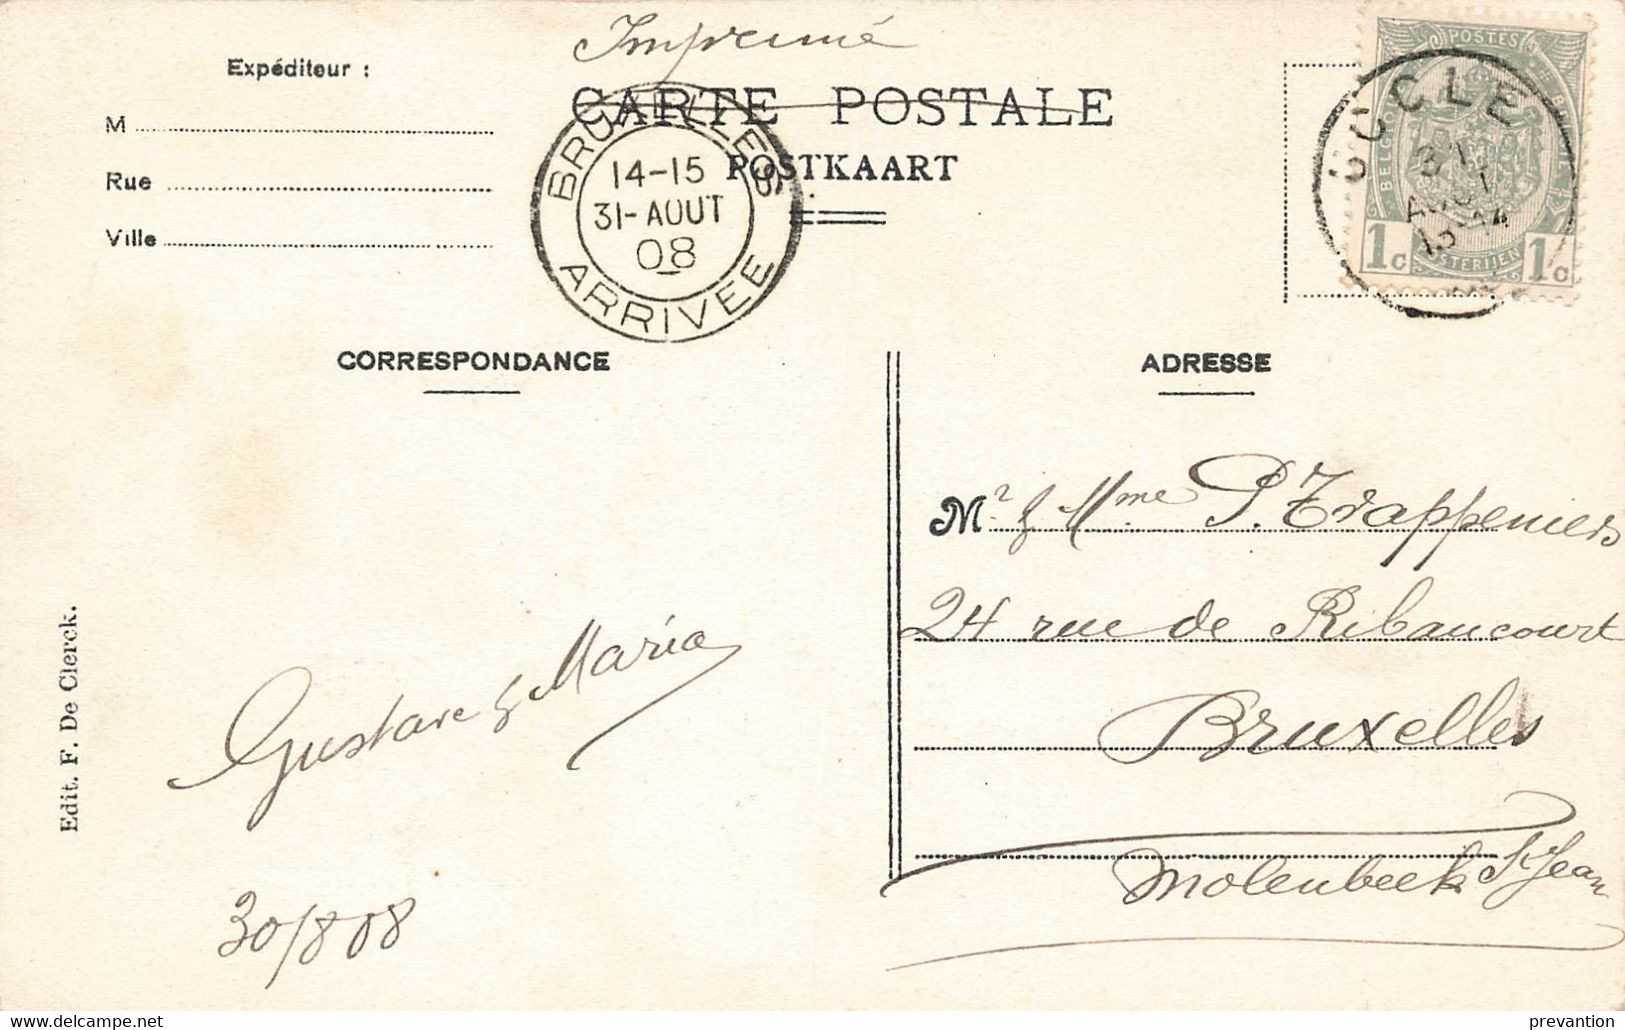 Imprimé
Expéditeur :
CARTE POSTALE
POSTKAART
M
Rue
Ville
BRUXELLES
14-15
31-AOUT
08
ARRIVEE
UCCLE
31
13-14
POSTES
BELGIQUE
1c 1c
CORRESPONDANCE
ADRESSE
Mr & Mme P. Trappeniers
24 rue de Ribaucourt
Bruxelles
Molenbeek St Jean
Gustave & Maria
30/8 08
Edit. F. De Clerck.
delcampe.net
prevantion